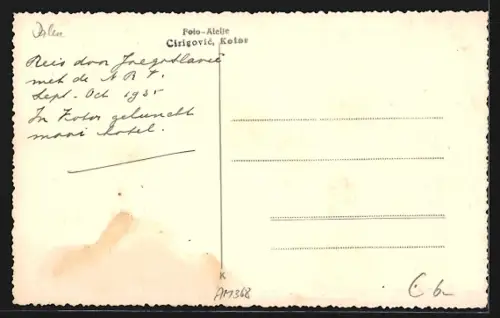 Foto-Atelie
Cirigović, Kotor
Reis door Joegoslavië
met de N R V.
Sept - Oct 1935
In Kotor geluncht
mooi hotel.
K
AM368
6,-